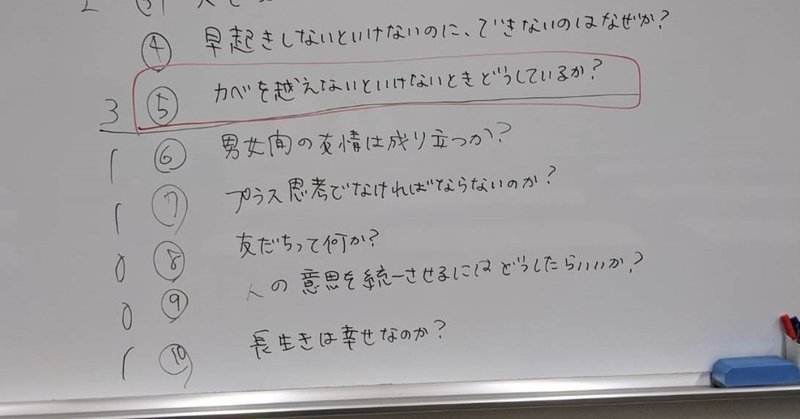 ④ 早起きしないといけないのに、できないのはなぜか?
3 ⑤ カベを越えないといけないときどうしているか?
1 ⑥ 男女間の友情は成り立つか?
1 ⑦ プラス思考でなければならないのか?
0 ⑧ 友だちって何か?
0 ⑨ 人の意思を統一させるにはどうしたらいいか?
1 ⑩ 長生きは幸せなのか?